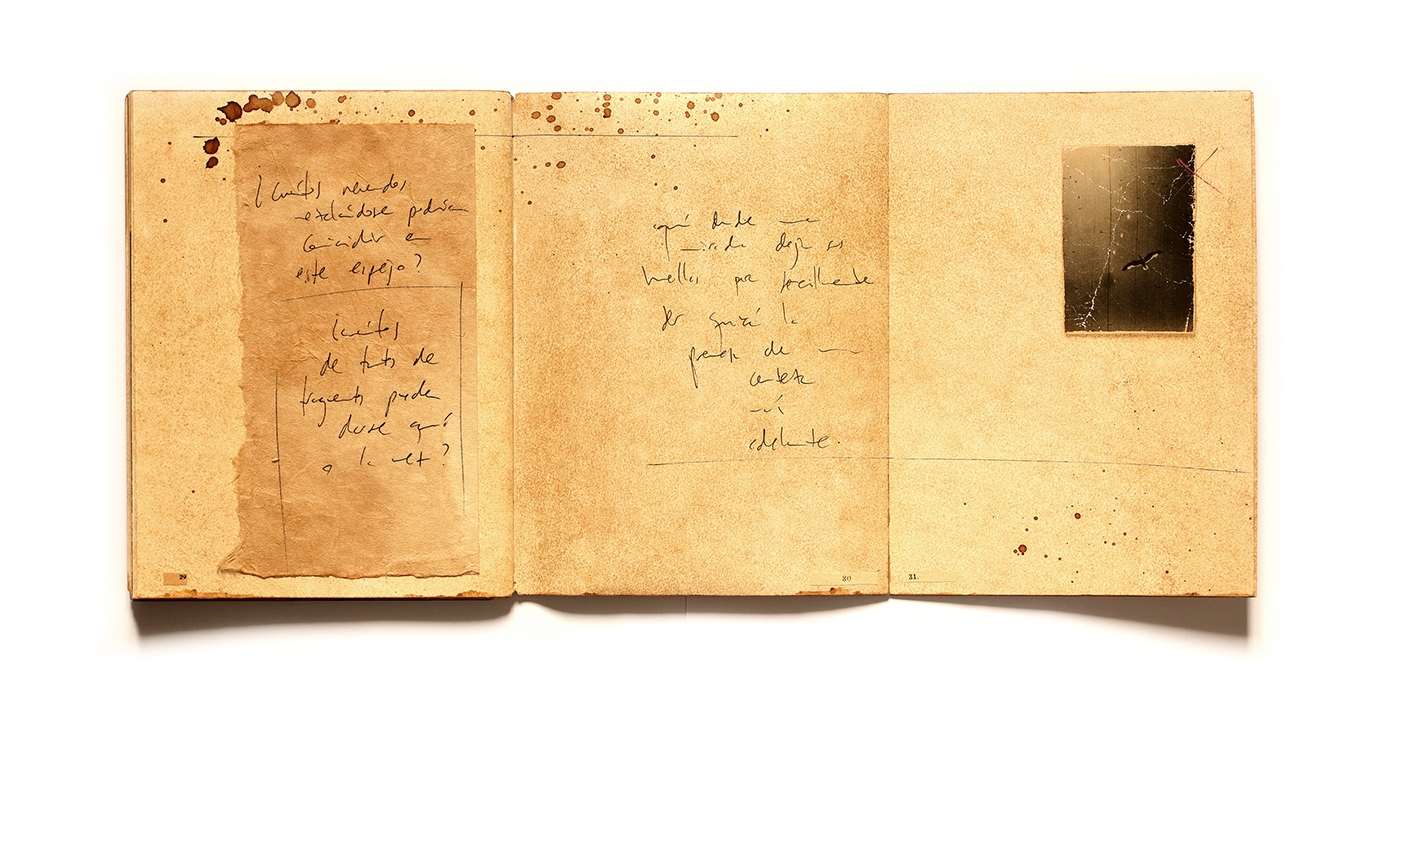 ¿Cuántos recuerdos
extraviándose podrían
coincidir en
este espejo?
¿Cuántos
de tantos de
fragmentos pueden
darse aquí
a la vez?
aquí donde una
mirada deja sus
huellas, por
ser quizá la
pareja de una
certeza
más
adelante.
29
30
31.